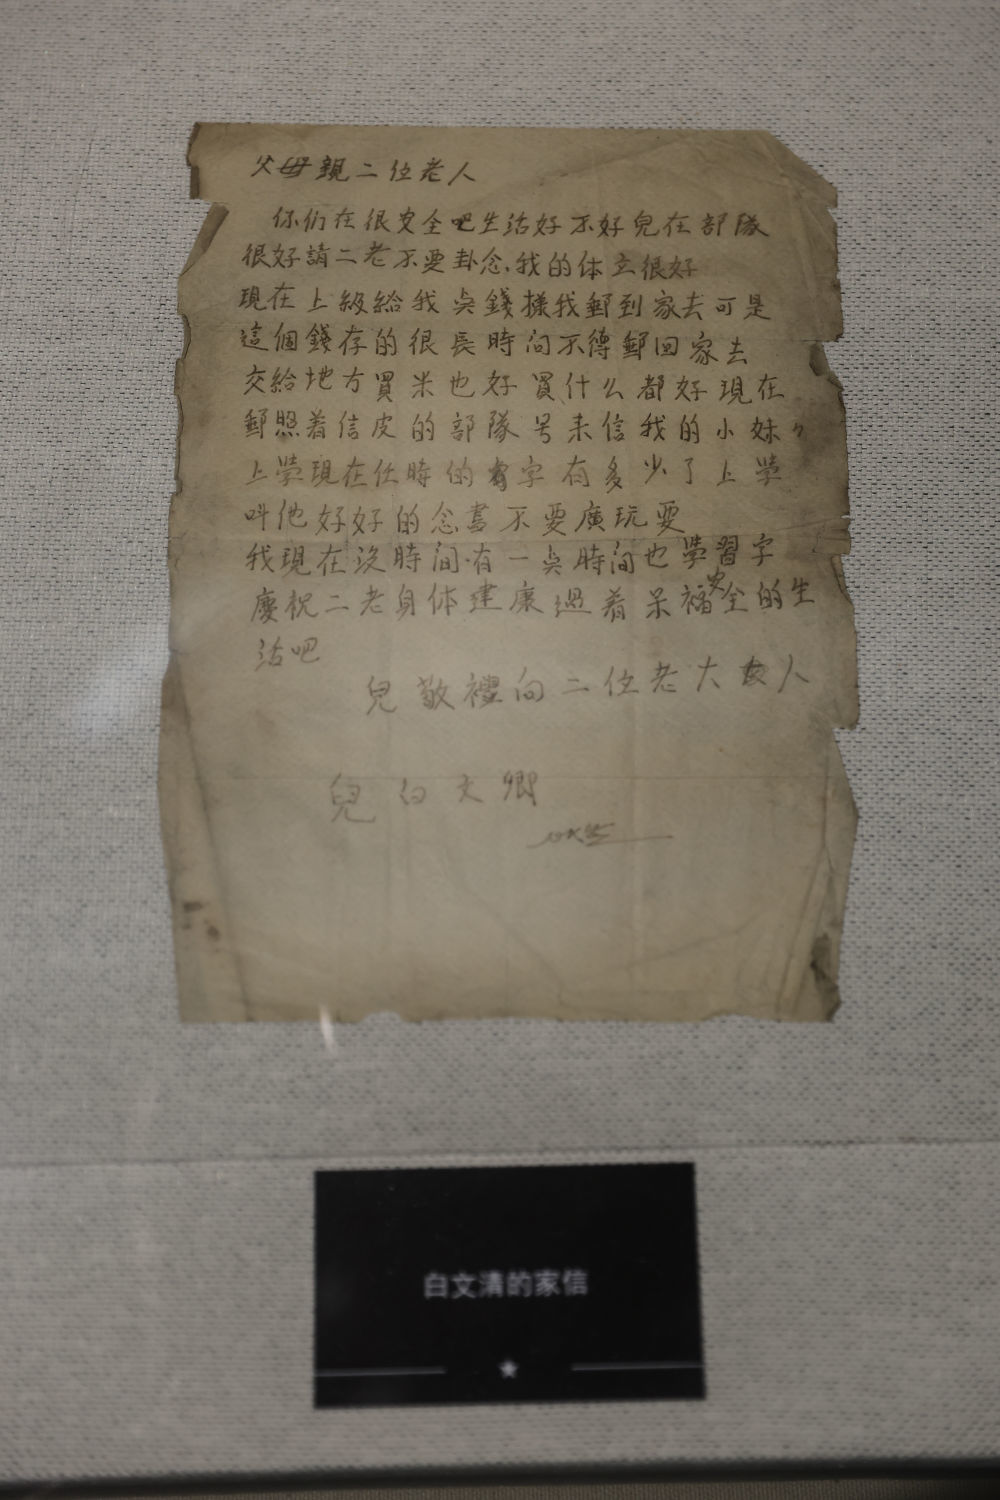 父母親二位老人
你们在很安全吧生活好不好兒在部隊
很好請二老不要卦念.我的体立很好
現在上級給我点錢樣我郵到家去可是
這個錢存的很長時间不得郵回家去
交給地方買米也好買什么都好現在
郵照着信皮的部隊号来信我的小妹々
上学現在任時的字有多少了上学
叫他好好的念書不要廣玩耍
我現在沒時間.有一点時間也学習字
慶祝二老身体建康過着呆福安全的生
活吧
兒敬禮向二位老大人
兒白文卿
白文清的家信